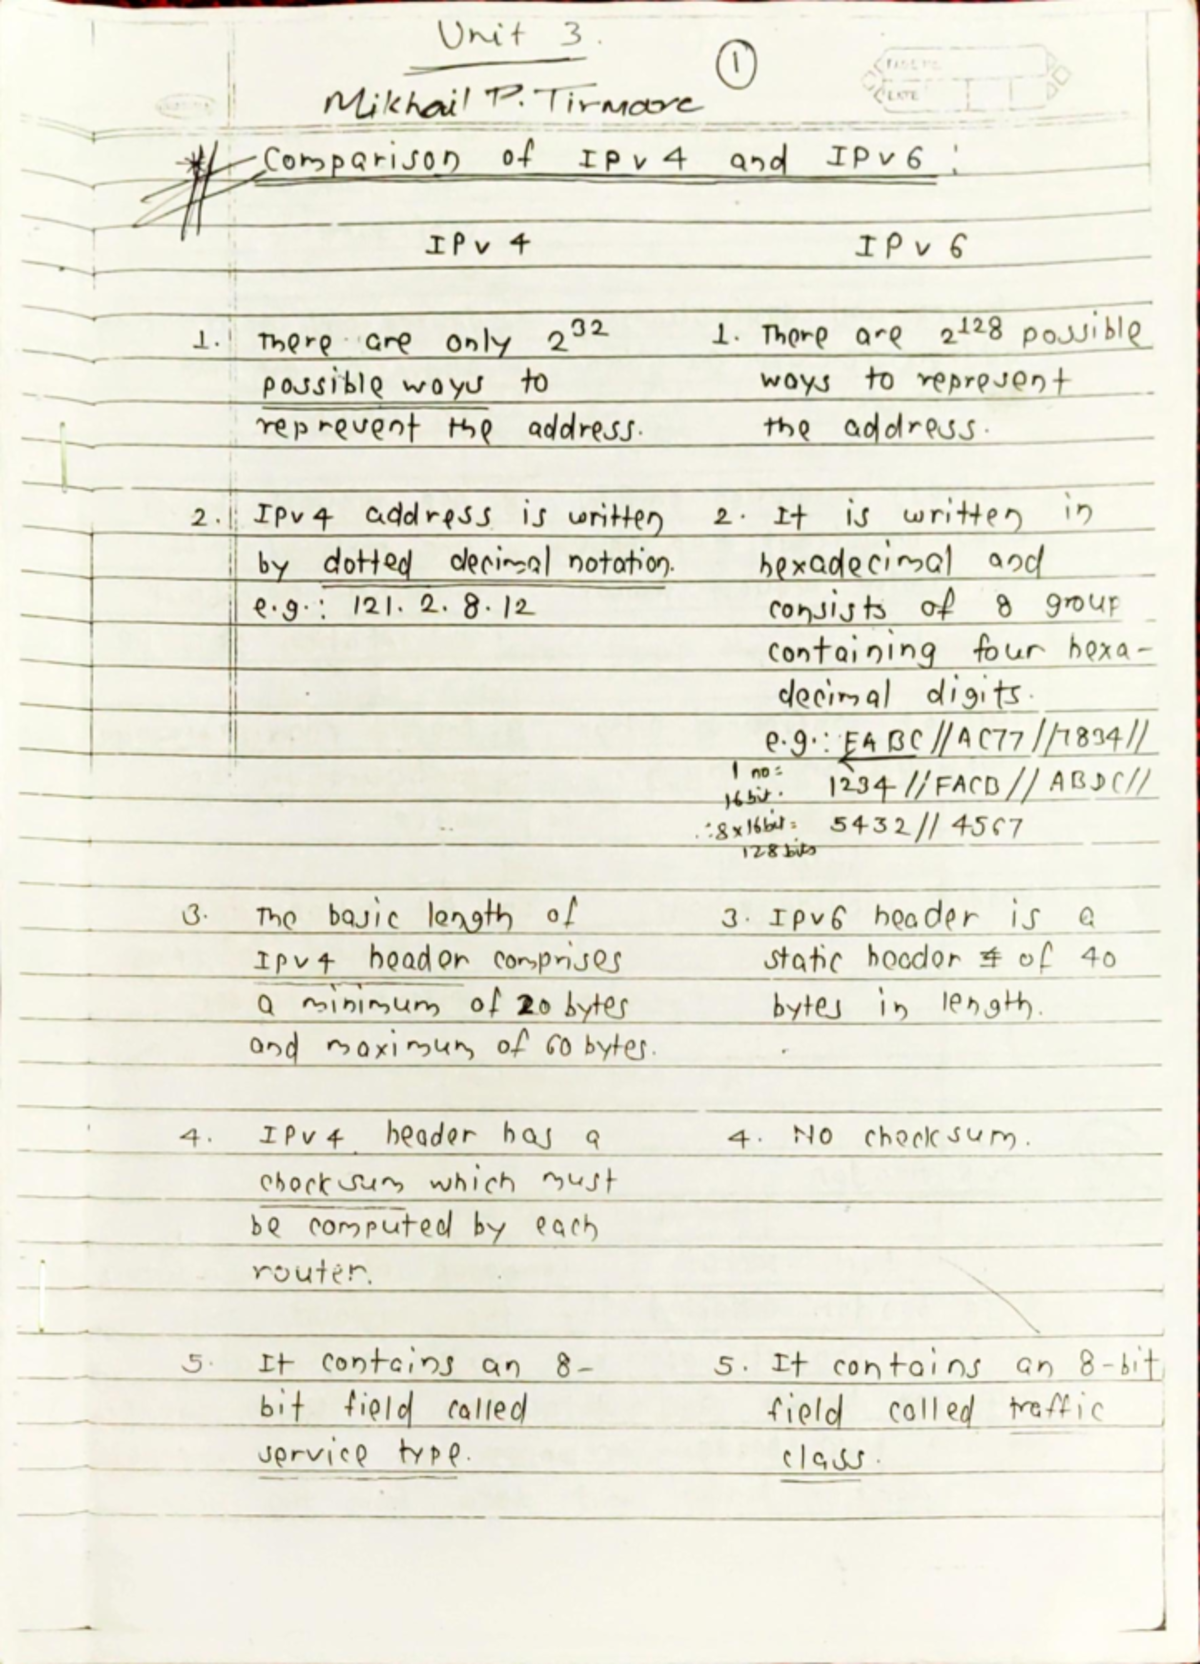 Unit 3.
1
PAGE NO.
DATE
Mikhail P. Tirmare
Comparison of IPv4 and IPv6 :
IPv4
IPv6
1. There are only 2^32
possible ways to
reprevent the address.
1. There are 2^128 possible
ways to represent
the address.
2. IPv4 address is written
by dotted decimal notation.
e.g.: 121. 2. 8. 12
2. It is written in
hexadecimal and
consists of 8 group
containing four hexa-
decimal digits.
e.g.: FABC//AC77//7834//
1234//FACB//ABDC//
5432//4567
1 no =
16 bit.
∴8x16bit=
128 bits
3. The basic length of
IPv4 header comprises
a minimum of 20 bytes
and maximum of 60 bytes.
3. IPv6 header is a
static header of 40
bytes in length.
4. IPv4 header has a
checksum which must
be computed by each
router.
4. No checksum.
5. It contains an 8-
bit field called
service type.
5. It contains an 8-bit
field called traffic
class.